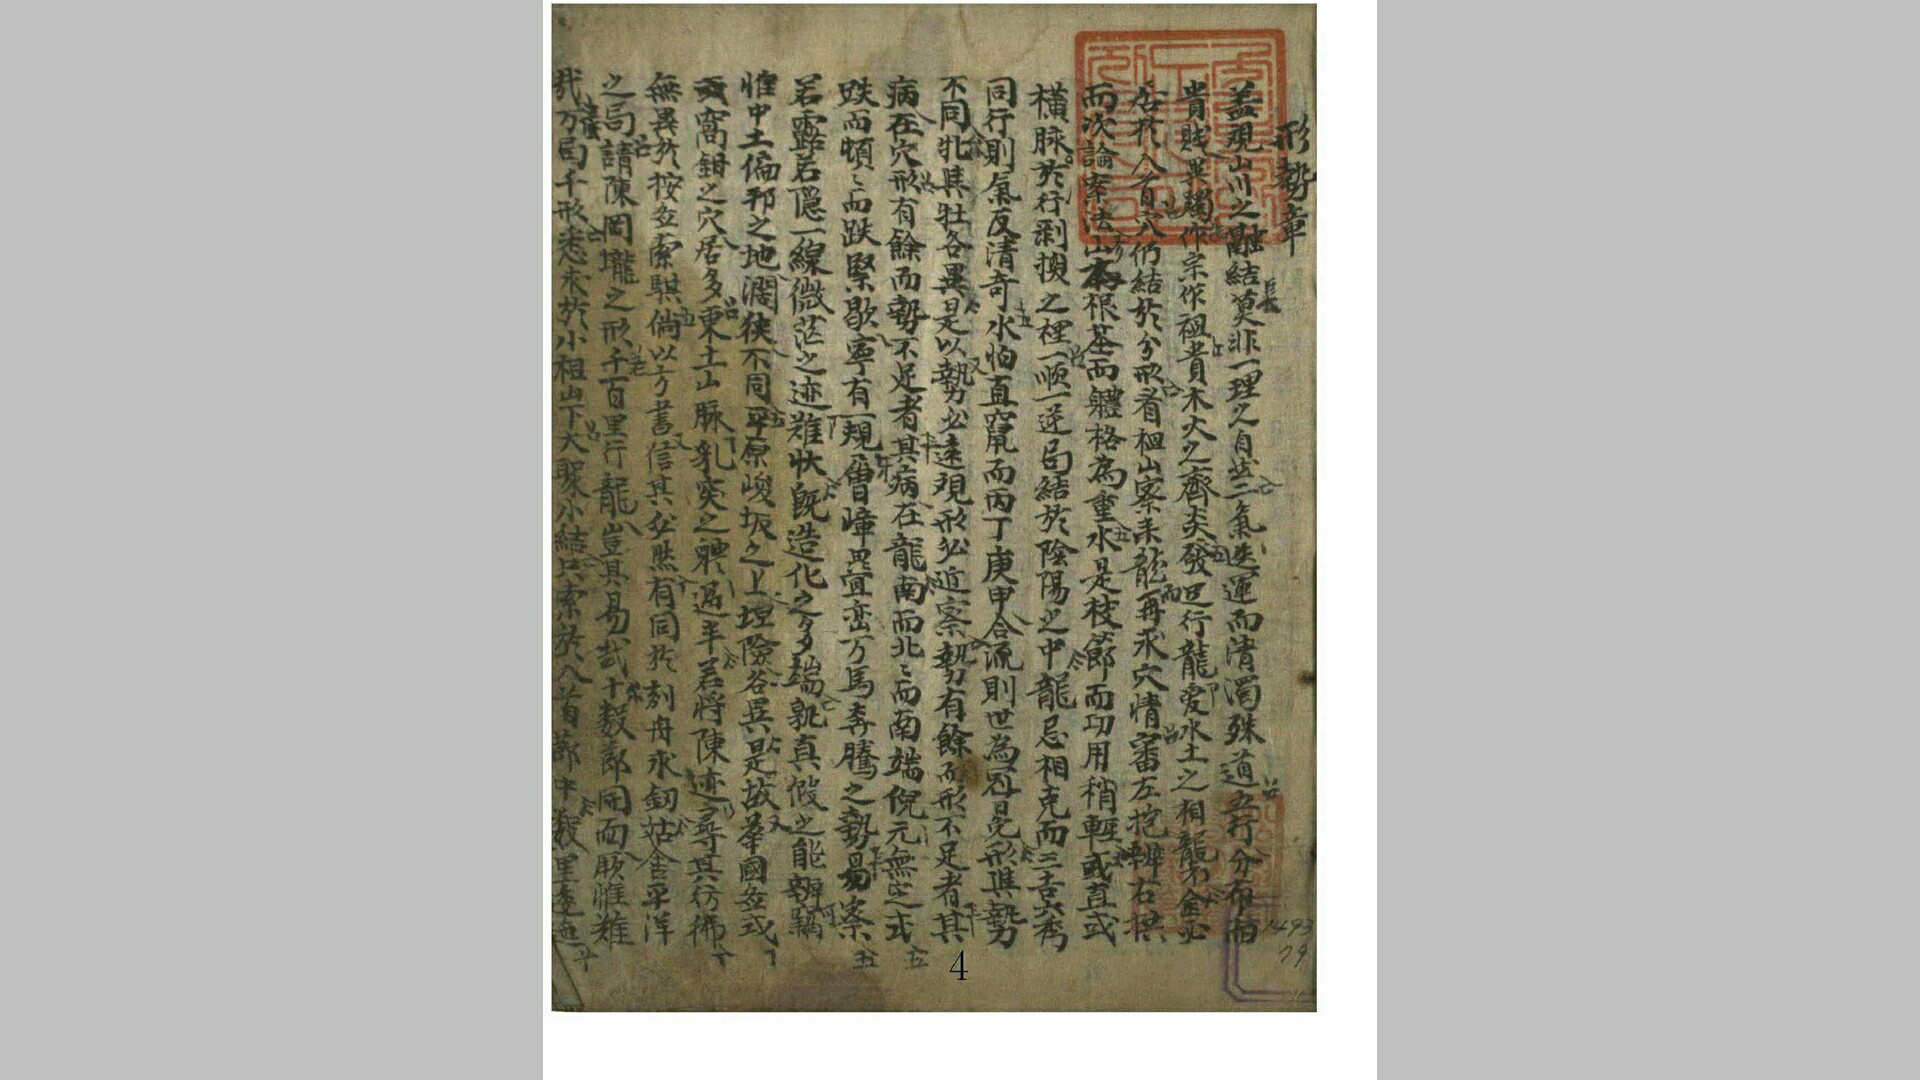 形勢章
盖觀山川之融結莫非一理之自然二氣迭運而淸濁殊道五行分布而
貴賤異躅作宗作祖貴木火之齊炎發跡行龍愛水土之相龍不金必
居於入首六八仍結於分形看祖山察來龍再求穴情審左抱辨右拱
而次論案法山本根基而軆格為重水是枝節而功用稍輕或直或
橫脉於行剥換之裡一順一逆局結於陰陽之中龍忌相克而三吉六秀
同行則氣反清奇水怕直竄而丙丁庚甲合流則世為
不同牝其牡各異是以勢必遠觀形必近察勢有餘而形不足者其
病在穴形有餘而勢不足者其病在龍南而北〻而南端倪元無定式
跌而頓〻而跌緊歇寧有一規層嶂疊巒万馬奔騰之勢易察
若露若隱一線微茫之迹難狀旣造化之多端孰真假之能辨竊
惟中土偏邦之地濶狹不同平原峻坂之上坦險各異是故華國盃或
窩鉗之穴居多東土山脉乳突之聘過半若將陳迹尋其彷彿
無異於按啚索騏倘以方書信其必然有同於刻舟求釼姑舍平洋
之局請陳岡壠之形千百里行龍豈其易哉十數節開面厥惟難
哉万局千形悉求於小祖山下大聚小結只索於入首節中數里逶迤
4